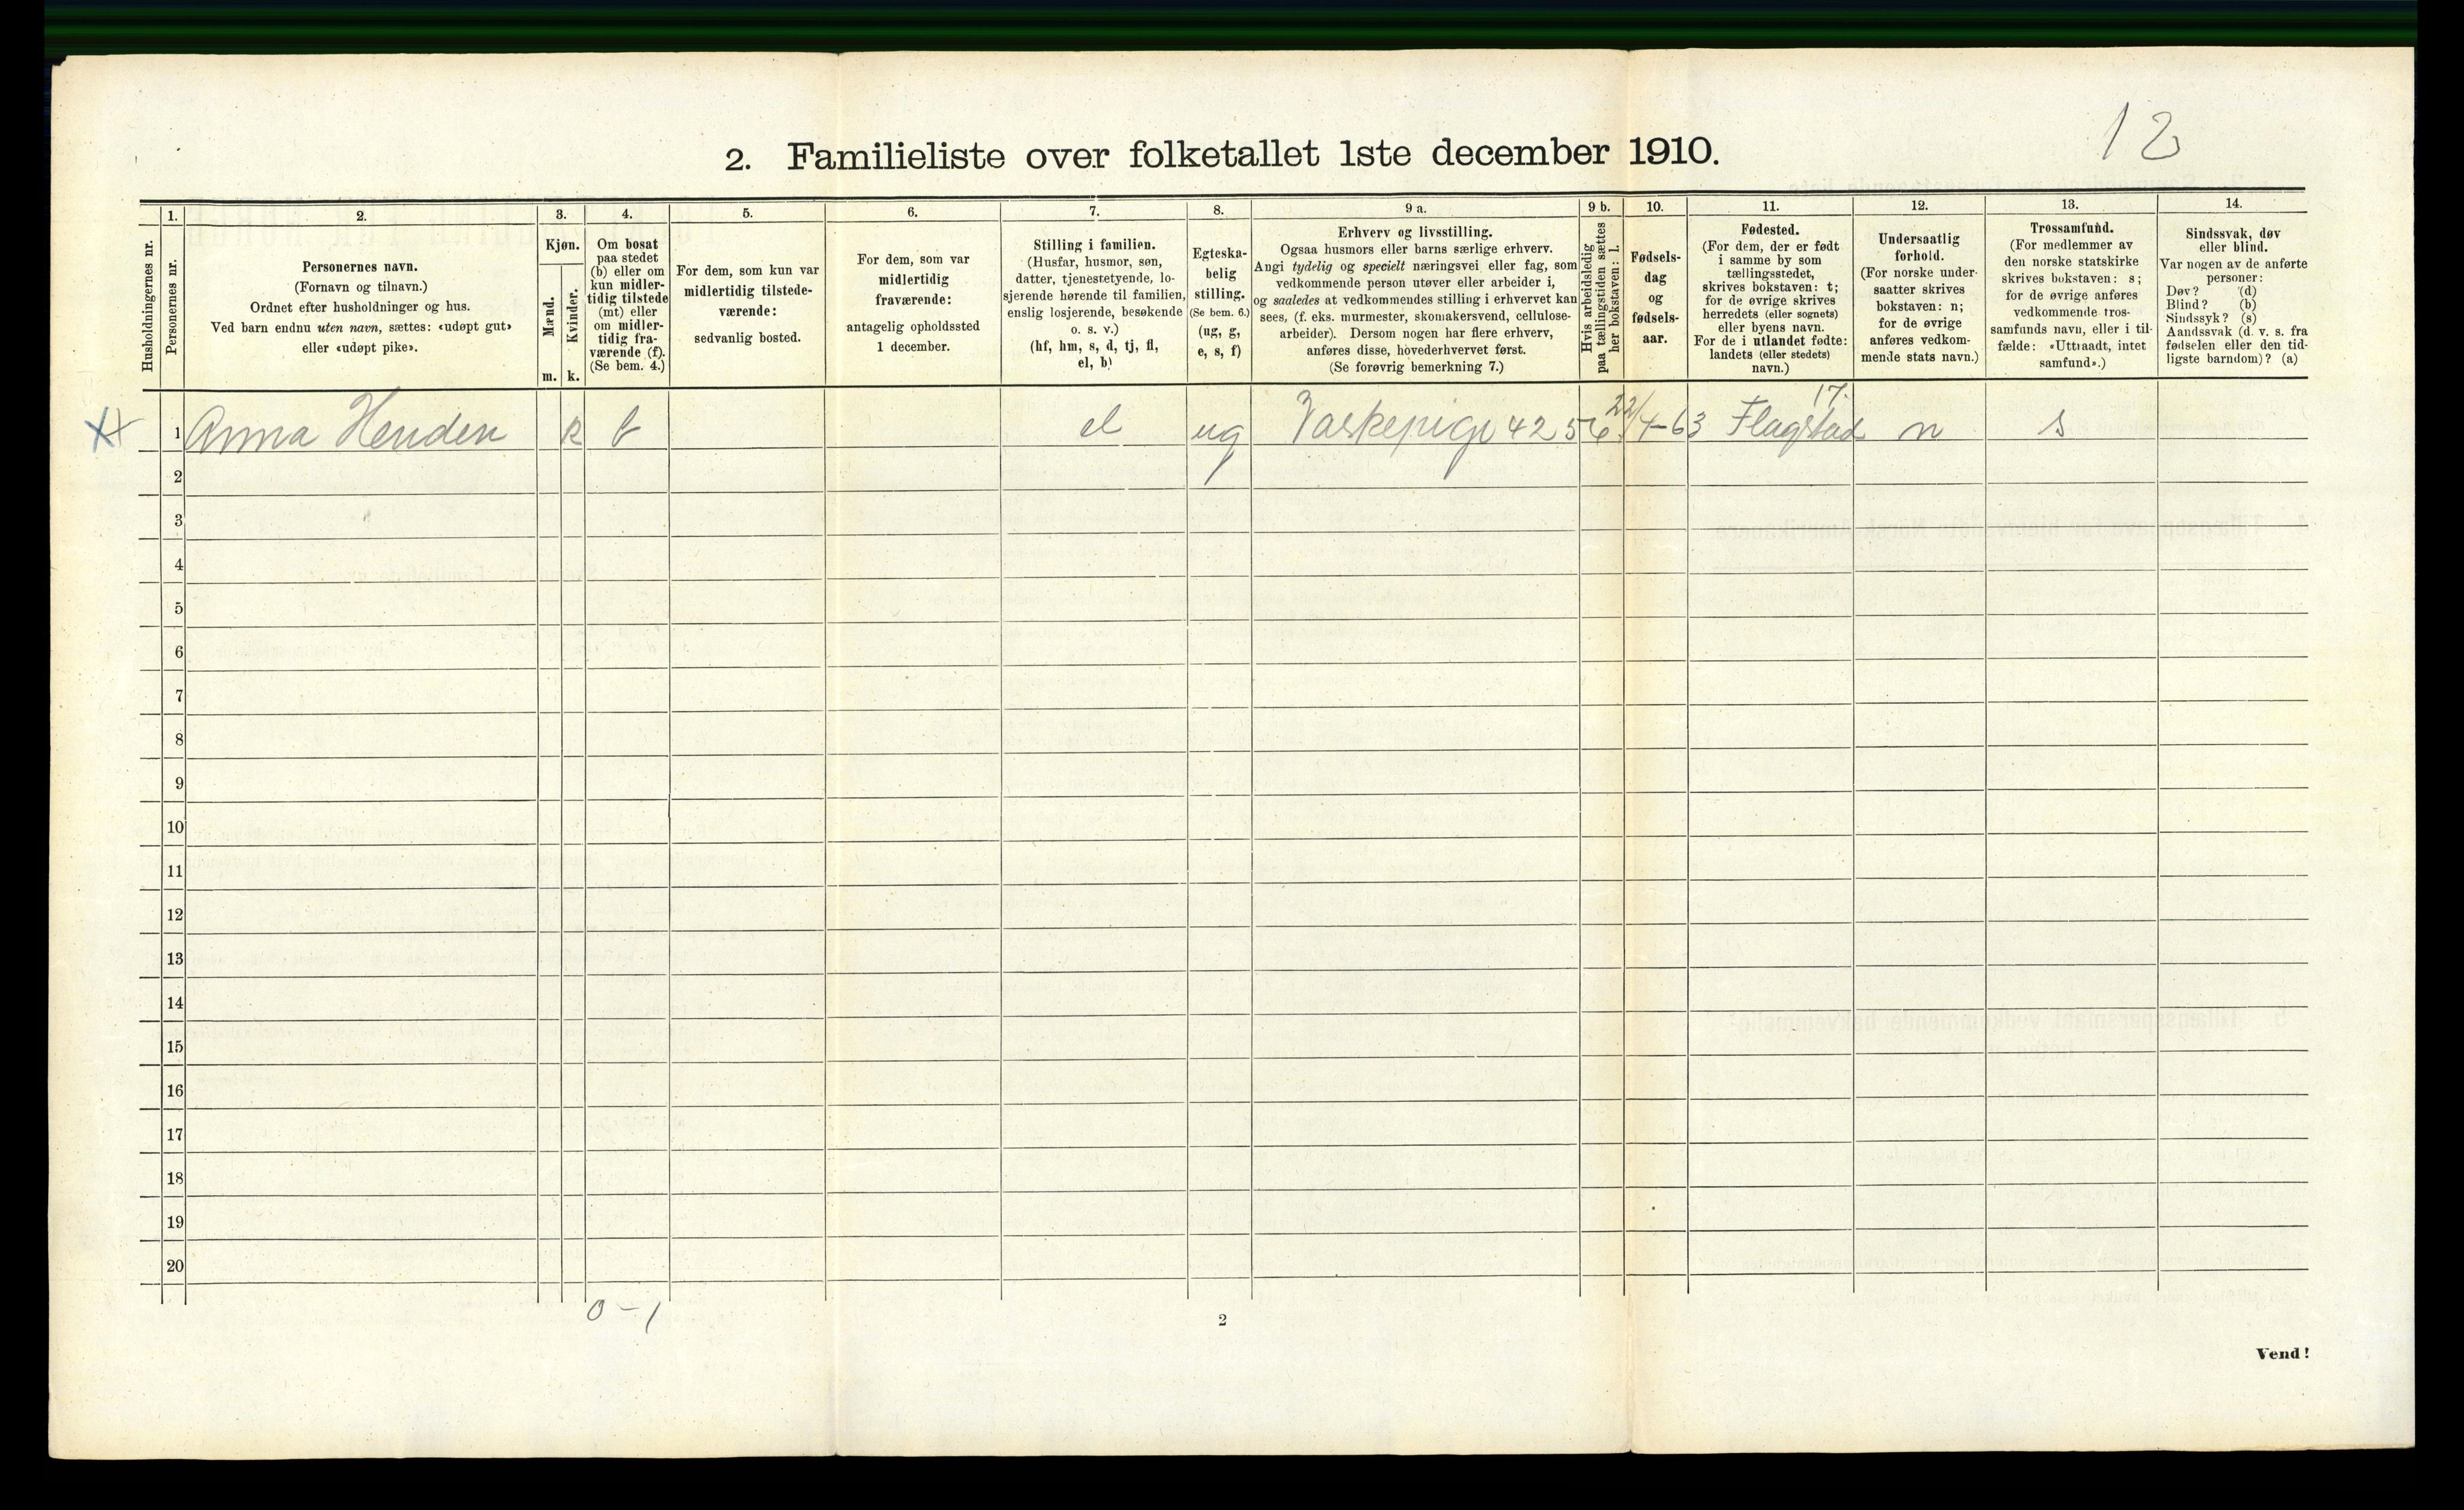 12
2. Familieliste over folketallet 1ste december 1910.
Husholdningernes nr.
1.
Personernes nr.
2.
Personernes navn.
(Fornavn og tilnavn.)
Ordnet efter husholdninger og hus.
Ved barn endnu uten navn, sættes: «udøpt gut»
eller «udøpt pike».
3.
Kjøn.
Mænd.
m.
Kvinder.
k.
4.
Om bosat
paa stedet
(b) eller om
kun midler-
tidig tilstede
(mt) eller
om midler-
tidig fra-
værende (f).
(Se bem. 4.)
5.
For dem, som kun var
midlertidig tilstede-
værende:
sedvanlig bosted.
6.
For dem, som var
midlertidig
fraværende:
antagelig opholdssted
1 december.
7.
Stilling i familien.
(Husfar, husmor, søn,
datter, tjenestetyende, lo-
sjerende hørende til familien,
enslig losjerende, besøkende
o. s. v.)
(hf, hm, s, d, tj, fl,
el, b)
8.
Egteska-
belig
stilling.
(Se bem. 6.)
(ug, g,
e, s, f)
9 a.
Erhverv og livsstilling.
Ogsaa husmors eller barns særlige erhverv.
Angi tydelig og specielt næringsvei eller fag, som
vedkommende person utøver eller arbeider i,
og saaledes at vedkommendes stilling i erhvervet kan
sees, (f. eks. murmester, skomakersvend, cellulose-
arbeider). Dersom nogen har flere erhverv,
anføres disse, hovederhvervet først.
(Se forøvrig bemerkning 7.)
9 b.
Hvis arbeidsledig
paa tællingstiden sættes
her bokstaven: l.
10.
Fødsels-
dag
og
fødsels-
aar.
11.
Fødested.
(For dem, der er født
i samme by som
tællingsstedet,
skrives bokstaven: t;
for de øvrige skrives
herredets (eller sognets)
eller byens navn.
For de i utlandet fødte:
landets (eller stedets)
navn.)
12.
Undersaatlig
forhold.
(For norske under-
saatter skrives
bokstaven: n;
for de øvrige
anføres vedkom-
mende stats navn.)
13.
Trossamfund.
(For medlemmer av
den norske statskirke
skrives bokstaven: s;
for de øvrige anføres
vedkommende tros-
samfunds navn, eller i til-
fælde: «Uttraadt, intet
samfund».)
14.
Sindssvak, døv
eller blind.
Var nogen av de anførte
personer:
Døv? (d)
Blind? (b)
Sindssyk? (s)
Aandssvak (d. v. s. fra
fødselen eller den tid-
ligste barndom)? (a)
17.
1 Anna Henden k b el ug Vaskepige 4256 22/4-63 Flagstad n s
2
3
4
5
6
7
8
9
10
11
12
13
14
15
16
17
18
19
20
0 - 1
2
Vend!